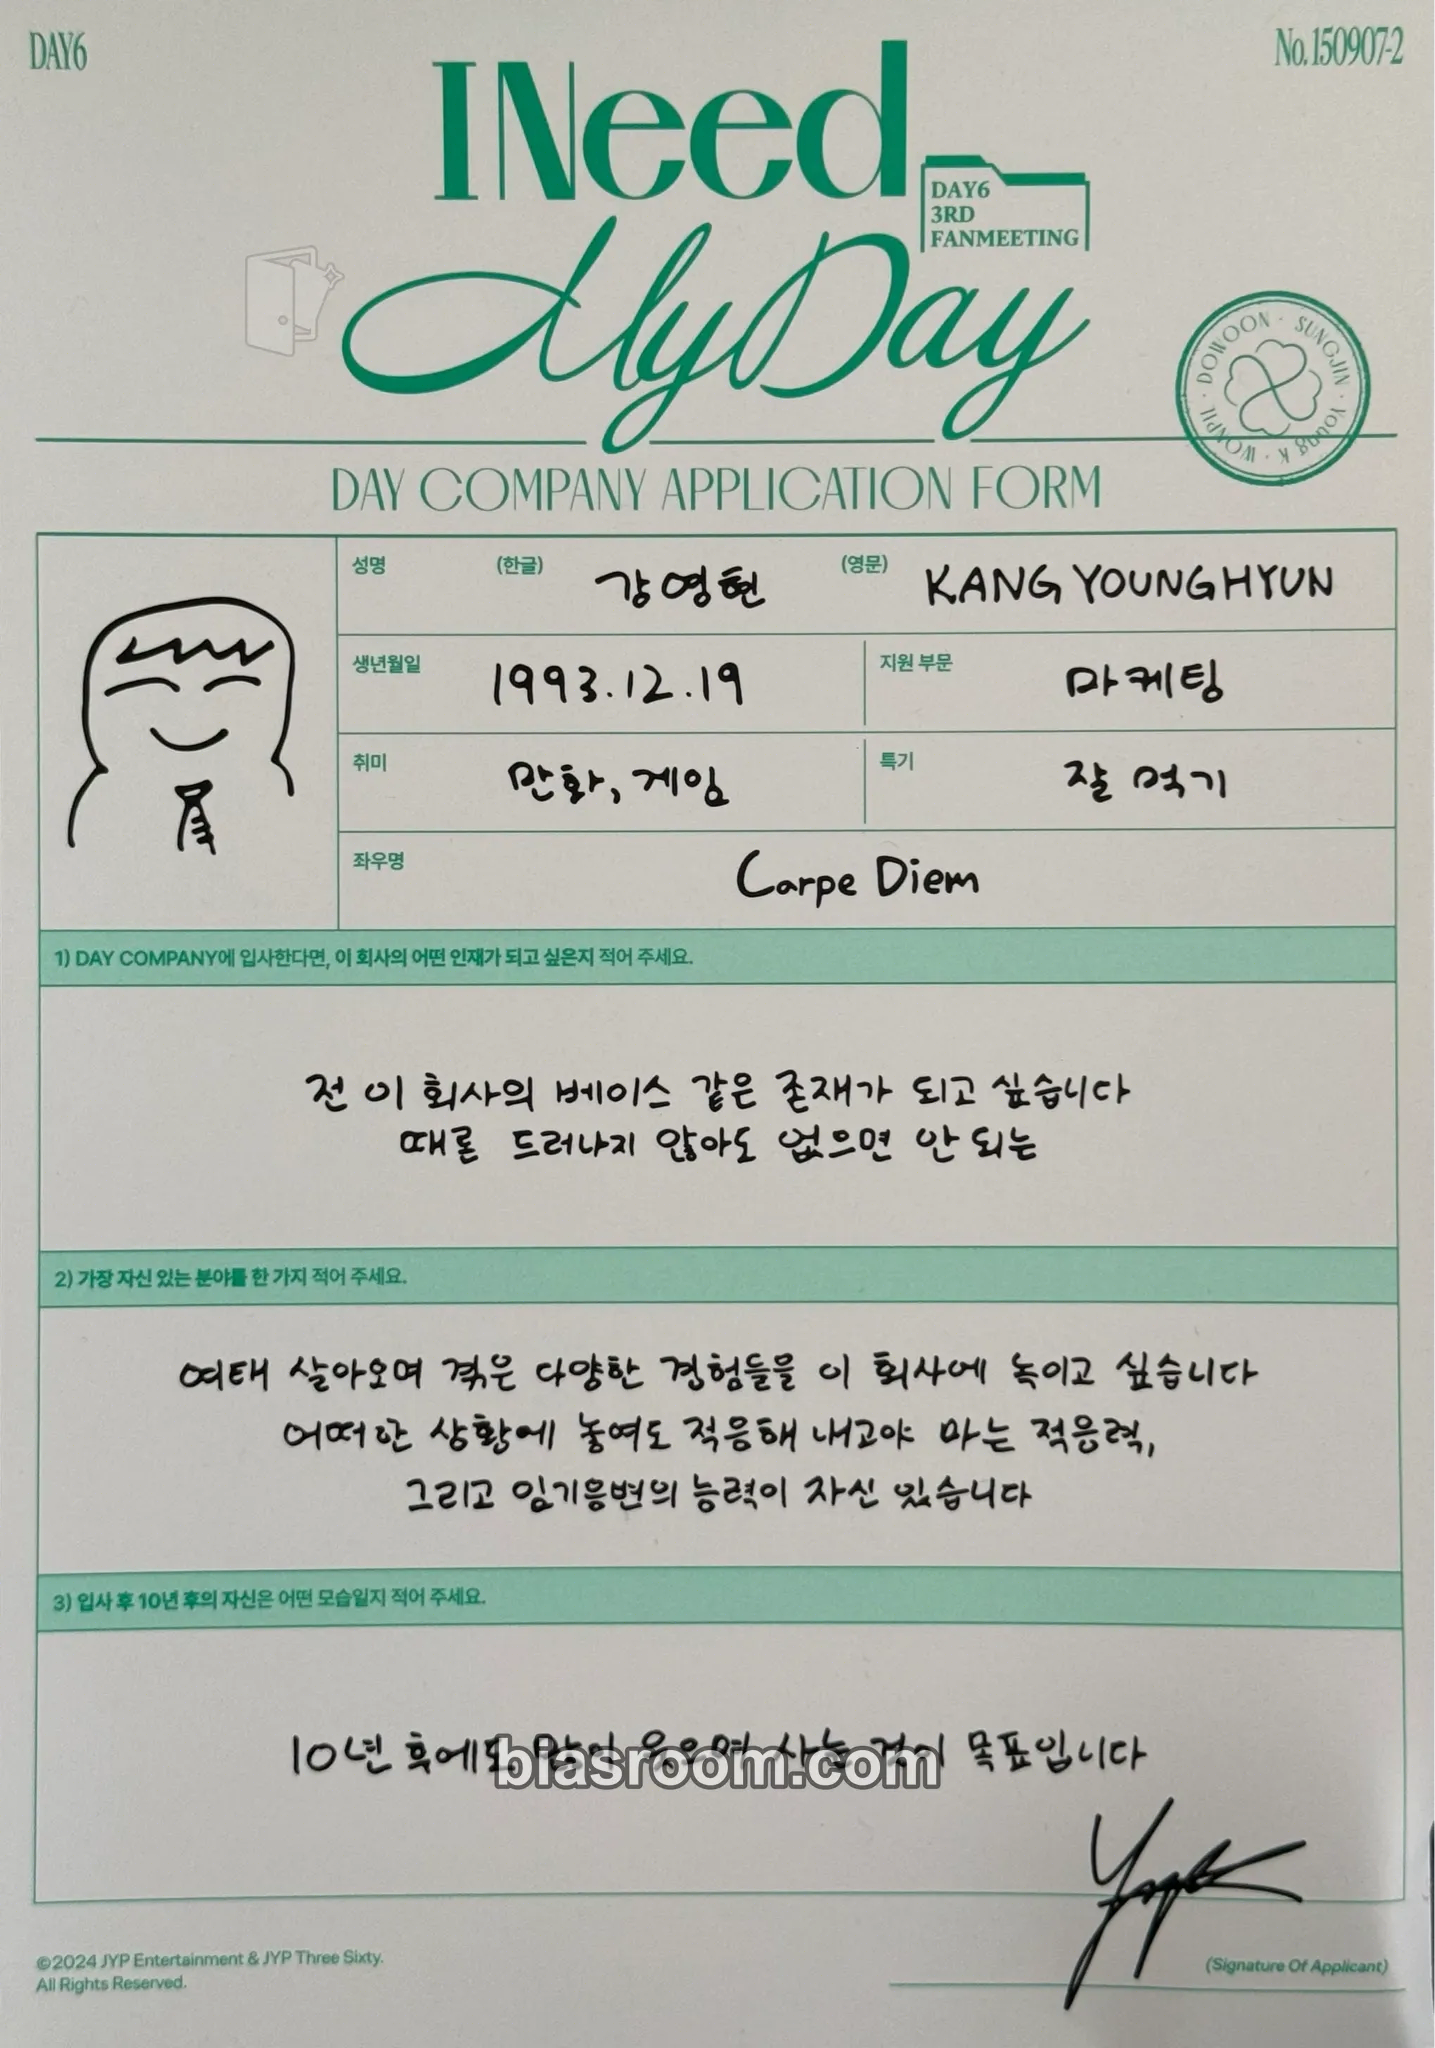 DAY6
No.150907-2
I Need
My Day
DAY6
3RD
FANMEETING
DOWOON · SUNGJIN · Young K · WONPIL ·
DAY COMPANY APPLICATION FORM
성명 (한글) 강영현 (영문) KANG YOUNGHYUN
생년월일 1993.12.19 지원 부문 마케팅
취미 만화, 게임 특기 잘 먹기
좌우명 Carpe Diem
1) DAY COMPANY에 입사한다면, 이 회사의 어떤 인재가 되고 싶은지 적어 주세요.
전 이 회사의 베이스 같은 존재가 되고 싶습니다
때론 드러나지 않아도 없으면 안 되는
2) 가장 자신 있는 분야를 한 가지 적어 주세요.
여태 살아오며 겪은 다양한 경험들을 이 회사에 녹이고 싶습니다
어떠한 상황에 놓여도 적응해 내고야 마는 적응력,
그리고 임기응변의 능력이 자신 있습니다
3) 입사 후 10년 후의 자신은 어떤 모습일지 적어 주세요.
10년 후에도 많이 웃으며 사는 것이 목표입니다
biasroom.com
(Signature Of Applicant)
©2024 JYP Entertainment & JYP Three Sixty.
All Rights Reserved.